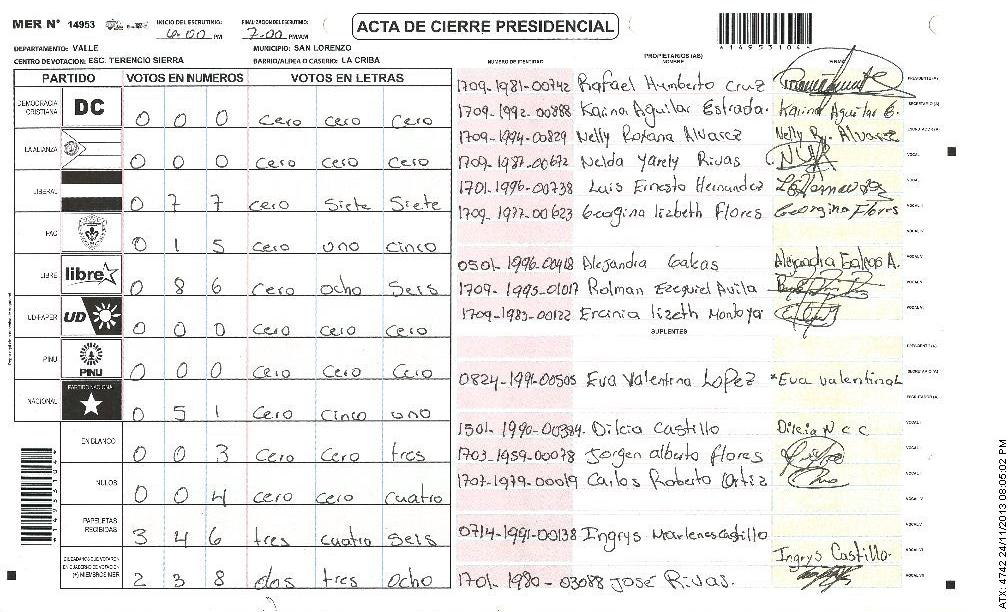 MER N° 14953
INICIO DEL ESCRUTINIO: 6:00 PM
FINALIZACION DEL ESCRUTINIO: 7:00 PM/AM
ACTA DE CIERRE PRESIDENCIAL
DEPARTAMENTO: VALLE
MUNICIPIO: SAN LORENZO
CENTRO DE VOTACION: ESC. TERENCIO SIERRA
BARRIO/ALDEA O CASERIO: LA CRIBA
PARTIDO VOTOS EN NUMEROS VOTOS EN LETRAS
DEMOCRACIA CRISTIANA DC 0 0 0 cero cero cero
LA ALIANZA 0 0 0 cero cero cero
LIBERAL 0 7 7 cero siete siete
PAC 0 1 5 cero uno cinco
LIBRE libre 0 8 6 cero ocho seis
UD/FAPER UD 0 0 0 cero cero cero
PINU PINU 0 0 0 cero cero cero
NACIONAL PARTIDO NACIONAL 0 5 1 cero cinco uno
EN BLANCO 0 0 3 cero cero tres
NULOS 0 0 4 cero cero cuatro
PAPELETAS RECIBIDAS 3 4 6 tres cuatro seis
CIUDADANOS QUE VOTARON EN CUADERNO DE VOTACION (+) MIEMBROS MER 2 3 8 dos tres ocho
NUMERO DE IDENTIDAD PROPIETARIOS (AS) NOMBRE FIRMA
1709-1981-00742 Rafael Humberto Cruz PRESIDENTE (A)
1709-1992-00888 Karina Aguilar Estrada. Karina Aguilar E. SECRETARIO (A)
1709-1994-00829 Nelly Roxana Alvarez Nelly Rx. Alvarez
1709-1987-00672 Nelda Yarely Rivas VOCAL I
1701-1996-00738 Luis Ernesto Hernandez
1709-1977-00623 Georgina lizbeth Flores Georgina Flores
0501-1996-00418 Alejandra Galeas Alejandra Galeas A.
1709-1995-01017 Rolman Ezequiel Avila
1709-1983-00122 Ercinia lizeth Montoya
SUPLENTES
PRESIDENTE (A)
0824-1991-00505 Eva Valentina Lopez *Eva valentina L SECRETARIO (A)
1501-1990-00384. Dilcia Castillo Dilcia N C C
1703-1959-00078 Jorgen alberto flores
1707-1979-00019 Carlos Roberto Ortiz
0714-1991-00138 Ingrys Marlenes castillo Ingrys Castillo.
1701-1980-03088 José Rivas.
ATX: 4742 24/11/2013 08:05:02 PM